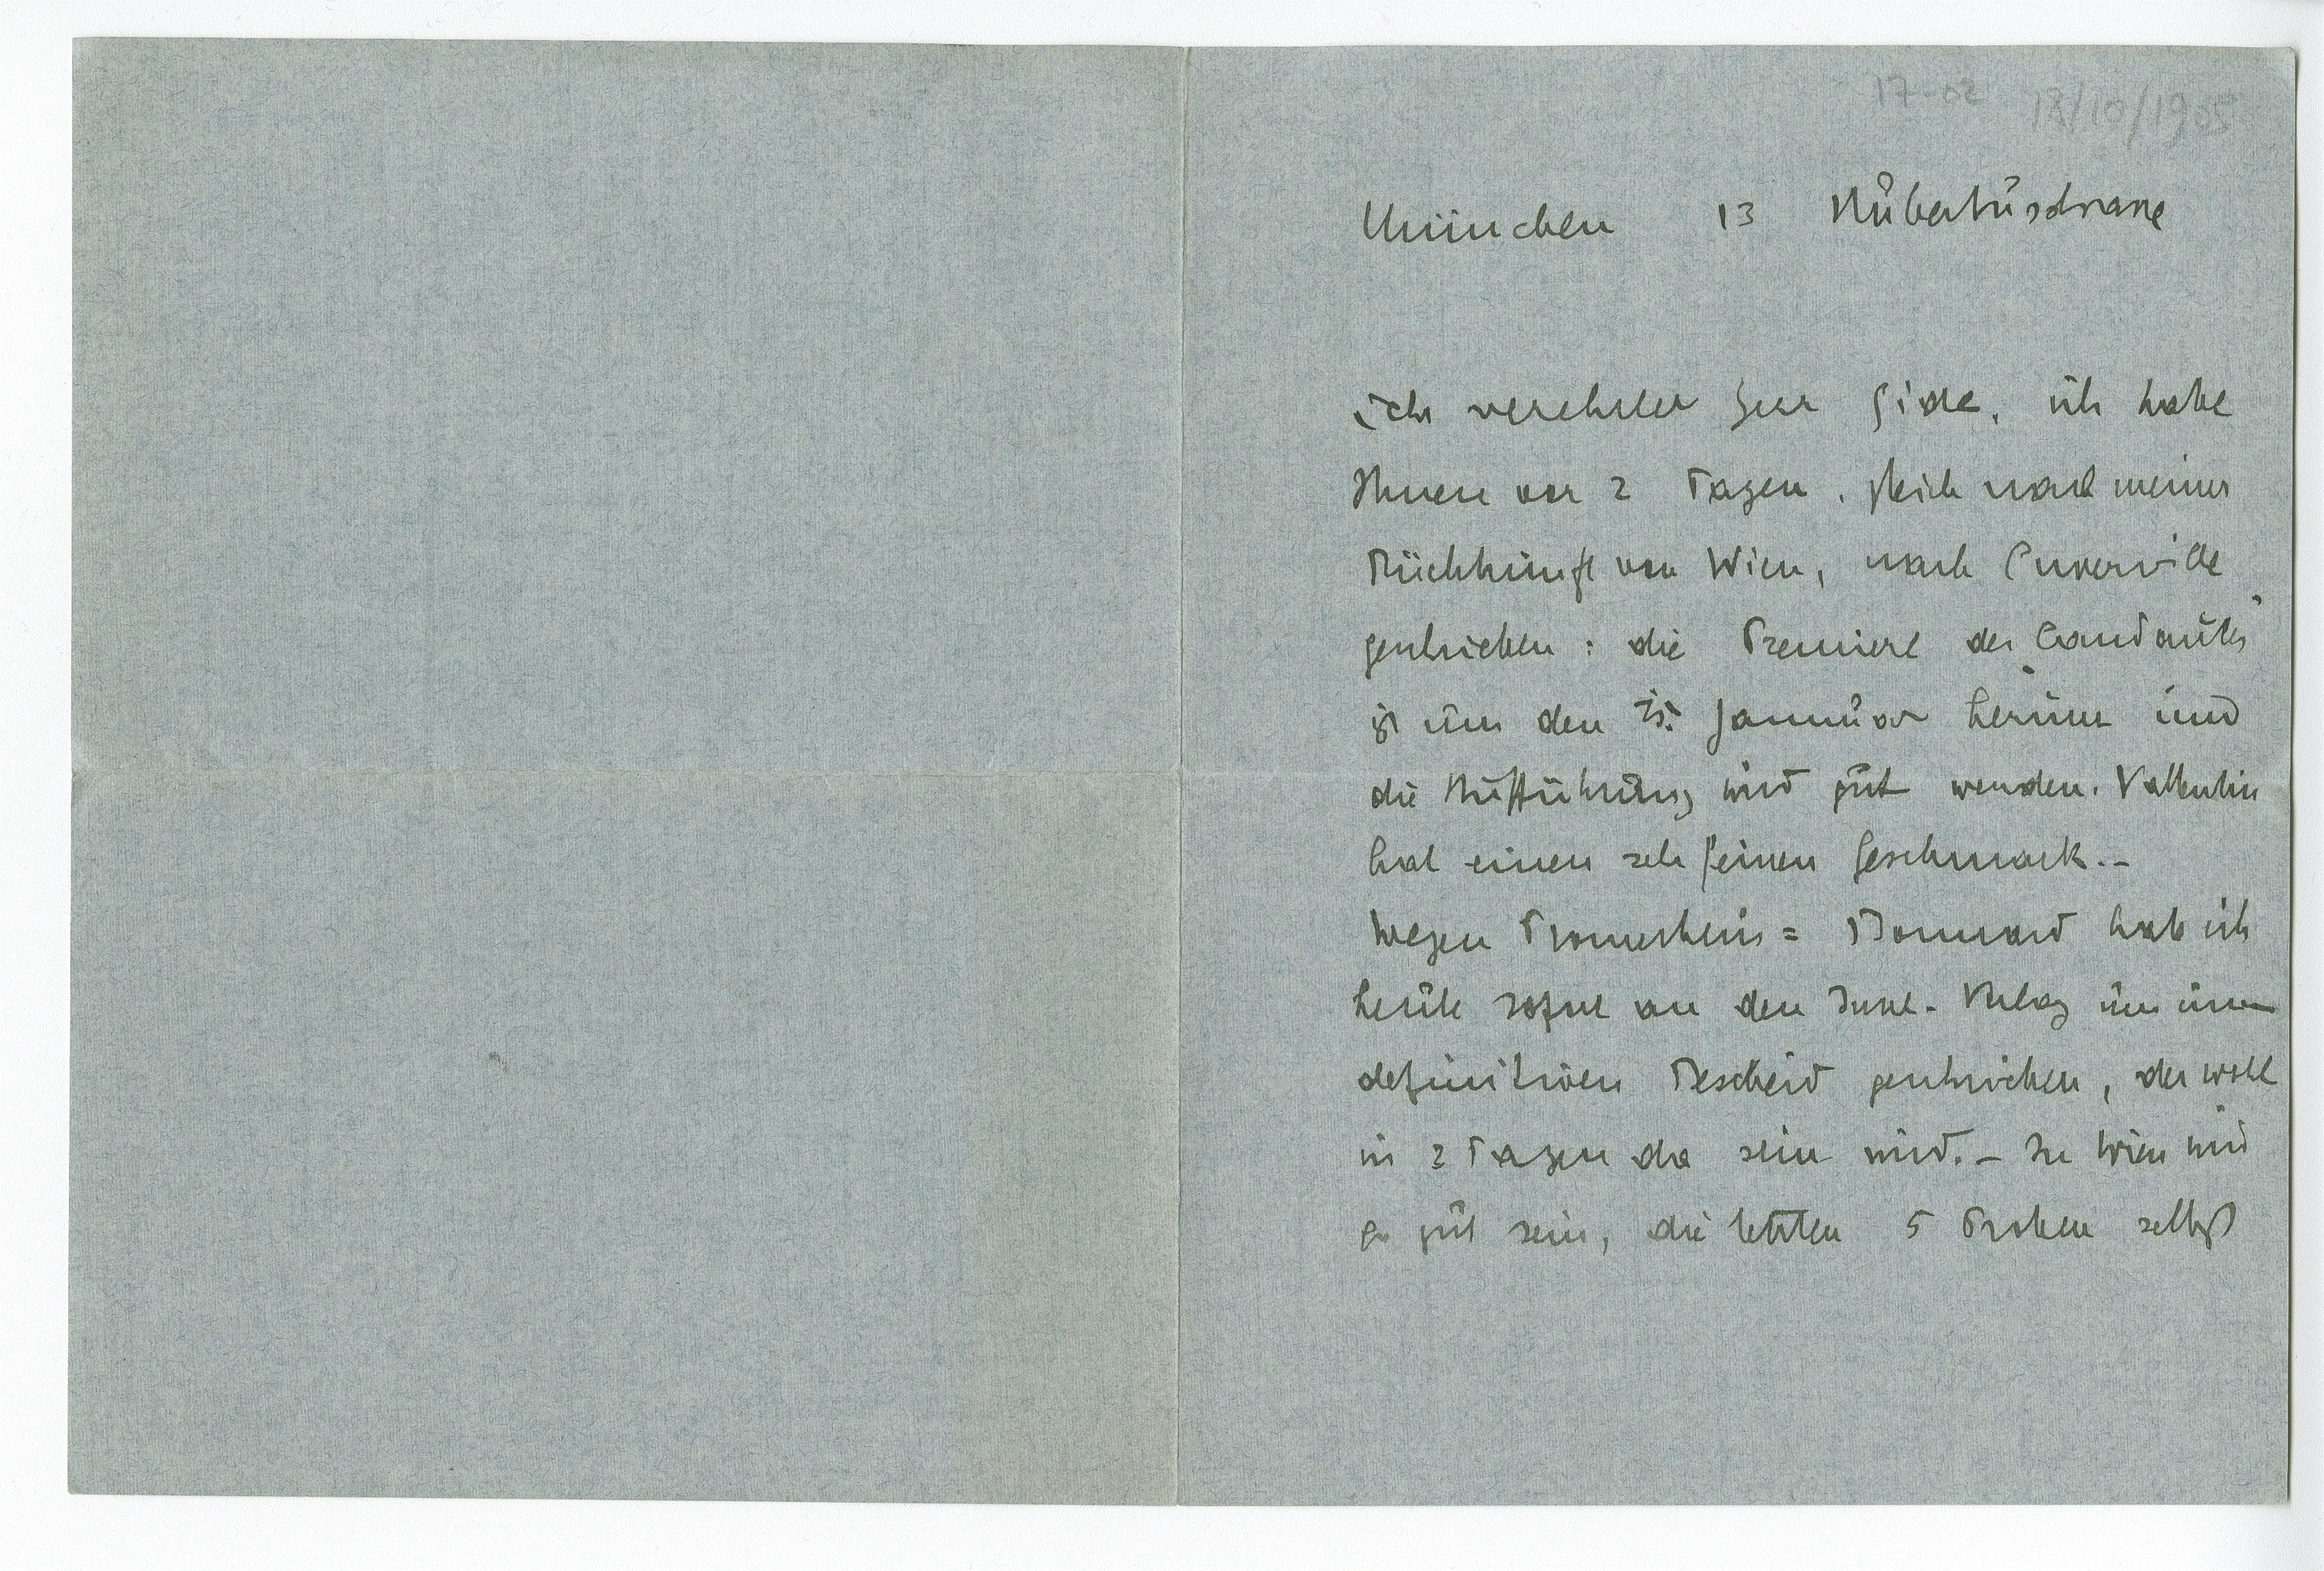 17-02 18/10/1905
München 13 Hubertusstrasse
sehr verehrter Herr Gide, ich habe
Ihnen vor 2 Tagen, gleich nach meiner
Rückkunft von Wien, nach Cuverville
geschrieben: die Premiere des "Candaules"
ist um den 15. Januar herum und
die Aufführung wird gut werden. Vallentin
hat einen sehr feinen Geschmack. –
Wegen Prometheus = Bonnard hab ich
heute sofort an den Insel-Verlag um
definitiven Bescheid geschrieben, der wohl
in 2 Tagen da sein wird. – In Wien wird
es gut sein, die letzten 5 Proben selbst